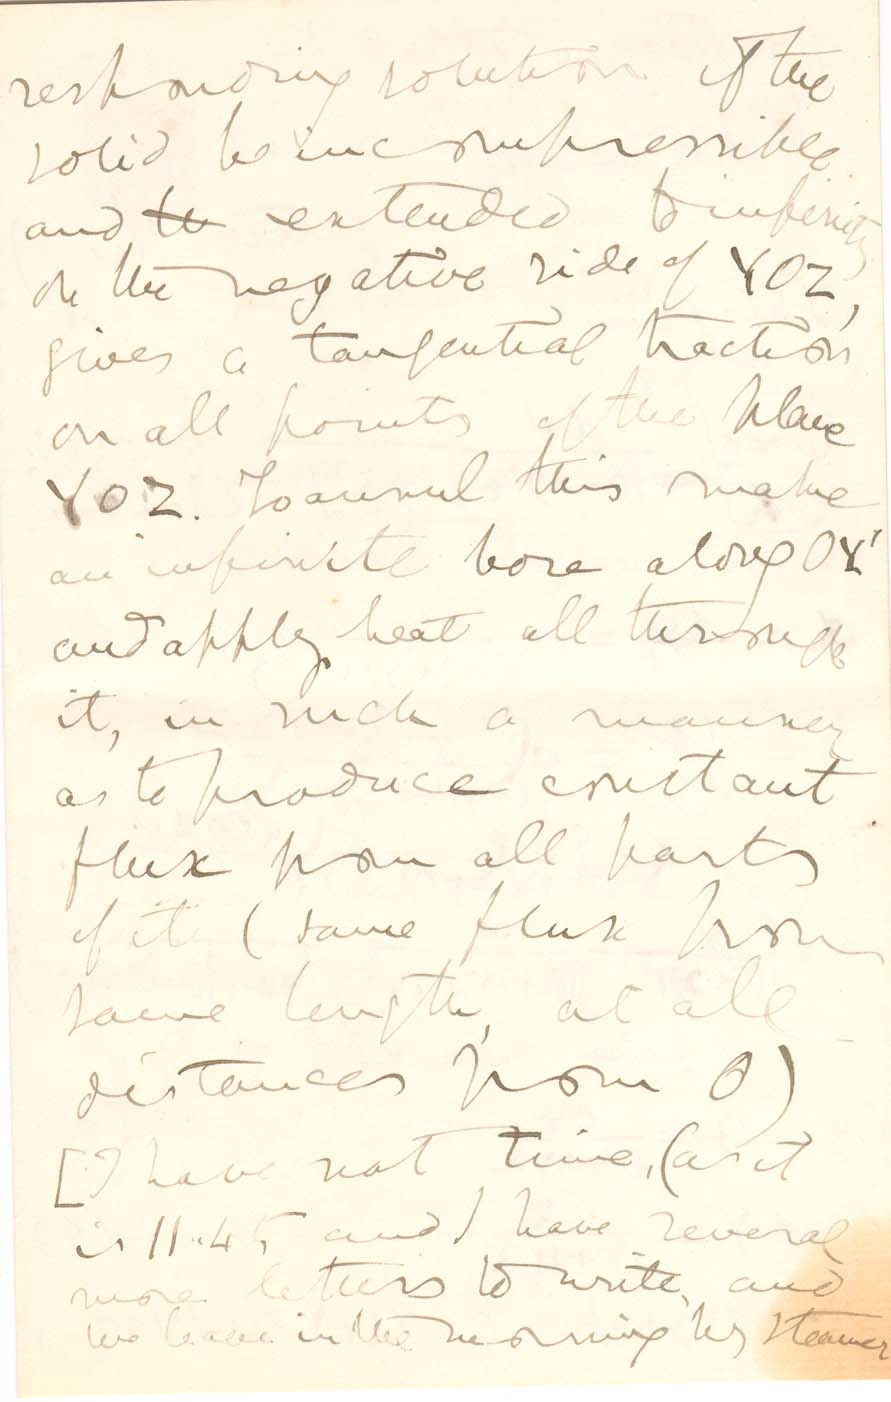 responding solution if the
solid be incompressible
and to extended to infinity
on the negative side of YOZ,
gives a tangential traction
on all points of the plane
YOZ. To annul this make
an infinite bore along OX'
and apply heat all through
it, in such a manner
as to produce constant
flux from all parts
of it (same flux from
same length, at all
distances from O)
[I have not time, (as it
is 11.45 and I have several
more letters to write, and
we leave in the morning by steamer